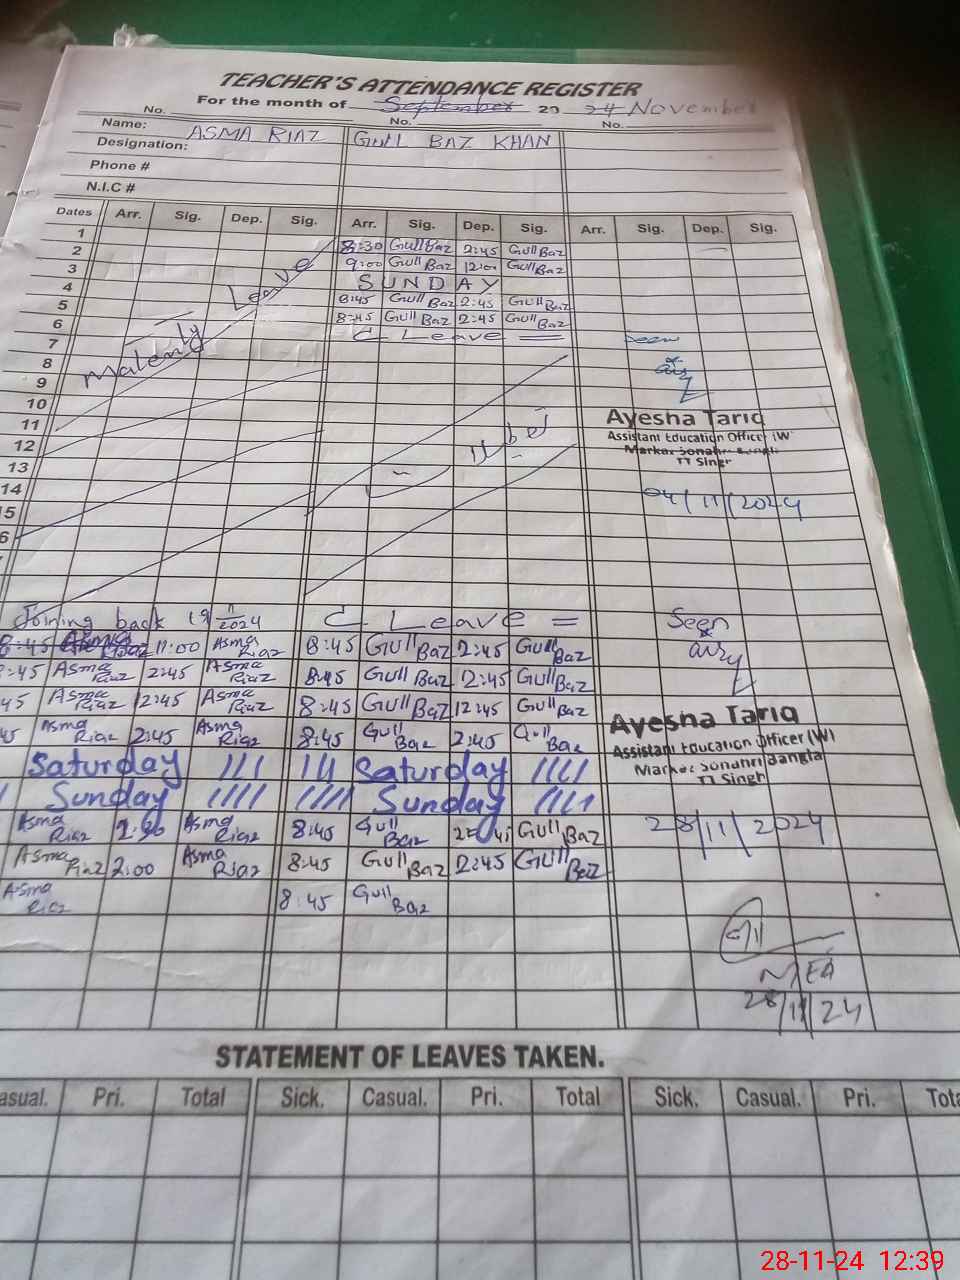 TEACHER'S ATTENDANCE REGISTER
For the month of September 20 24 November
No. No. No.
Name: ASMA RIAZ GULL BAZ KHAN
Designation:
Phone #
N.I.C #
Dates Arr. Sig. Dep. Sig. Arr. Sig. Dep. Sig. Arr. Sig. Dep. Sig.
1
2 8:30 Gull Baz 2:45 Gull Baz
3 9:00 Gull Baz 12:00 Gull Baz
4 SUNDAY
5 8:45 Gull Baz 2:45 Gull Baz
6 8:45 Gull Baz 2:45 Gull Baz
7 C Leave = Seen
Leave
8
9
10
11 Ayesha Tariq
12 Assistant Education Officer (W)
13 Markaz Sonahri
TT Singh
14
15 04/11/2024
6
Joining back 19/11/2024 C Leave = Seen
8:45 Asma Riaz 11:00 Asma Riaz 8:45 Gull Baz 2:45 Gull Baz
:45 Asma Riaz 2:45 Asma Riaz 8:45 Gull Baz 12:45 Gull Baz
45 Asma Riaz 12:45 Asma Riaz 8:45 Gull Baz 12:45 Gull Baz
45 Asma Riaz 2:45 Asma Riaz 8:45 Gull Baz 2:45 Gull Baz
Ayesha Tariq
Assistant Education Officer (W)
Markaz Sonahri Bangla
TT Singh
Saturday Saturday
Sunday Sunday
Asma Riaz Asma Riaz 8:45 Gull Baz Gull Baz 28/11/2024
Asma Riaz 2:00 Asma Riaz 8:45 Gull Baz 2:45 Gull Baz
Asma Riaz 8:45 Gull Baz
MEA
28/11/24
STATEMENT OF LEAVES TAKEN.
asual. Pri. Total Sick. Casual. Pri. Total Sick. Casual. Pri. Tota
28-11-24 12:39